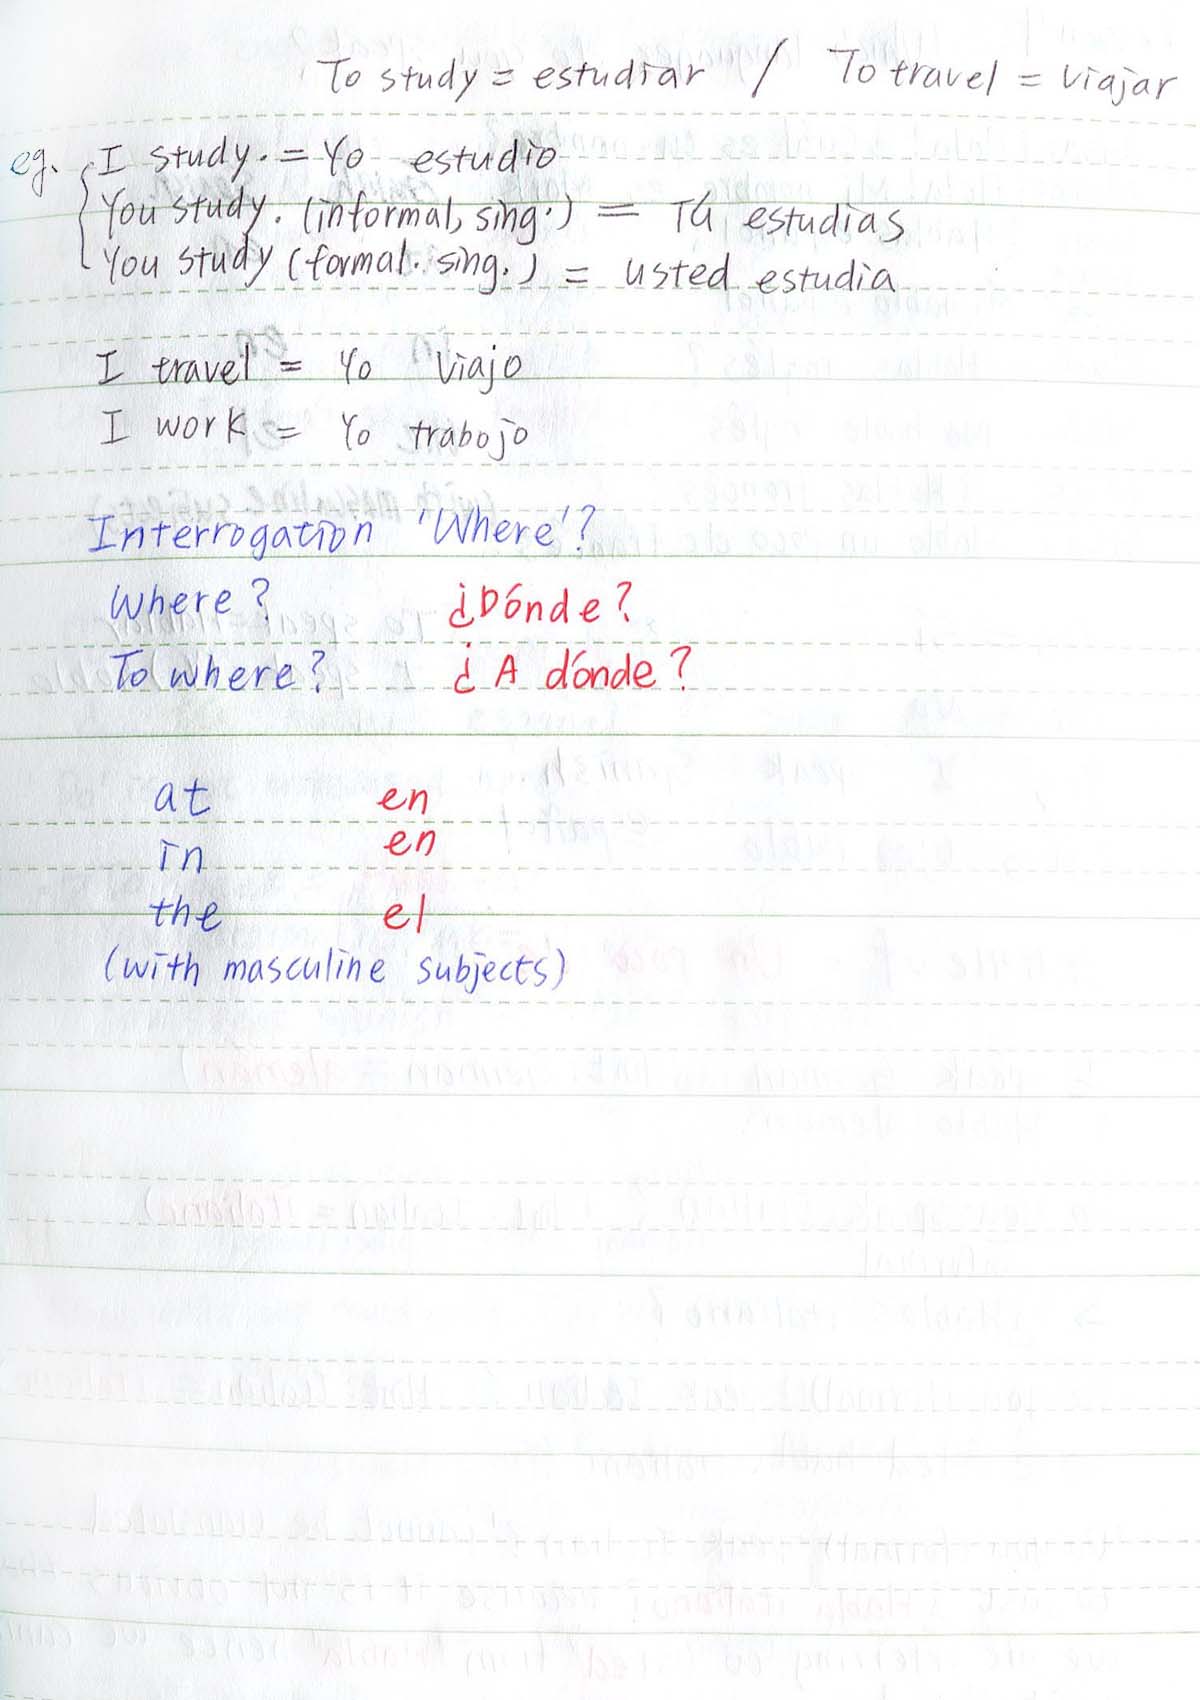 To study = estudiar / To travel = viajar
eg. I study. = Yo estudio
You study. (informal, sing.) = Tú estudias
You study (formal. sing.) = usted estudia
I travel = Yo viajo
I work = Yo trabojo
Interrogation 'Where'?
Where? ¿Dónde?
To where? ¿A dónde?
at en
in en
the el
(with masculine subjects)